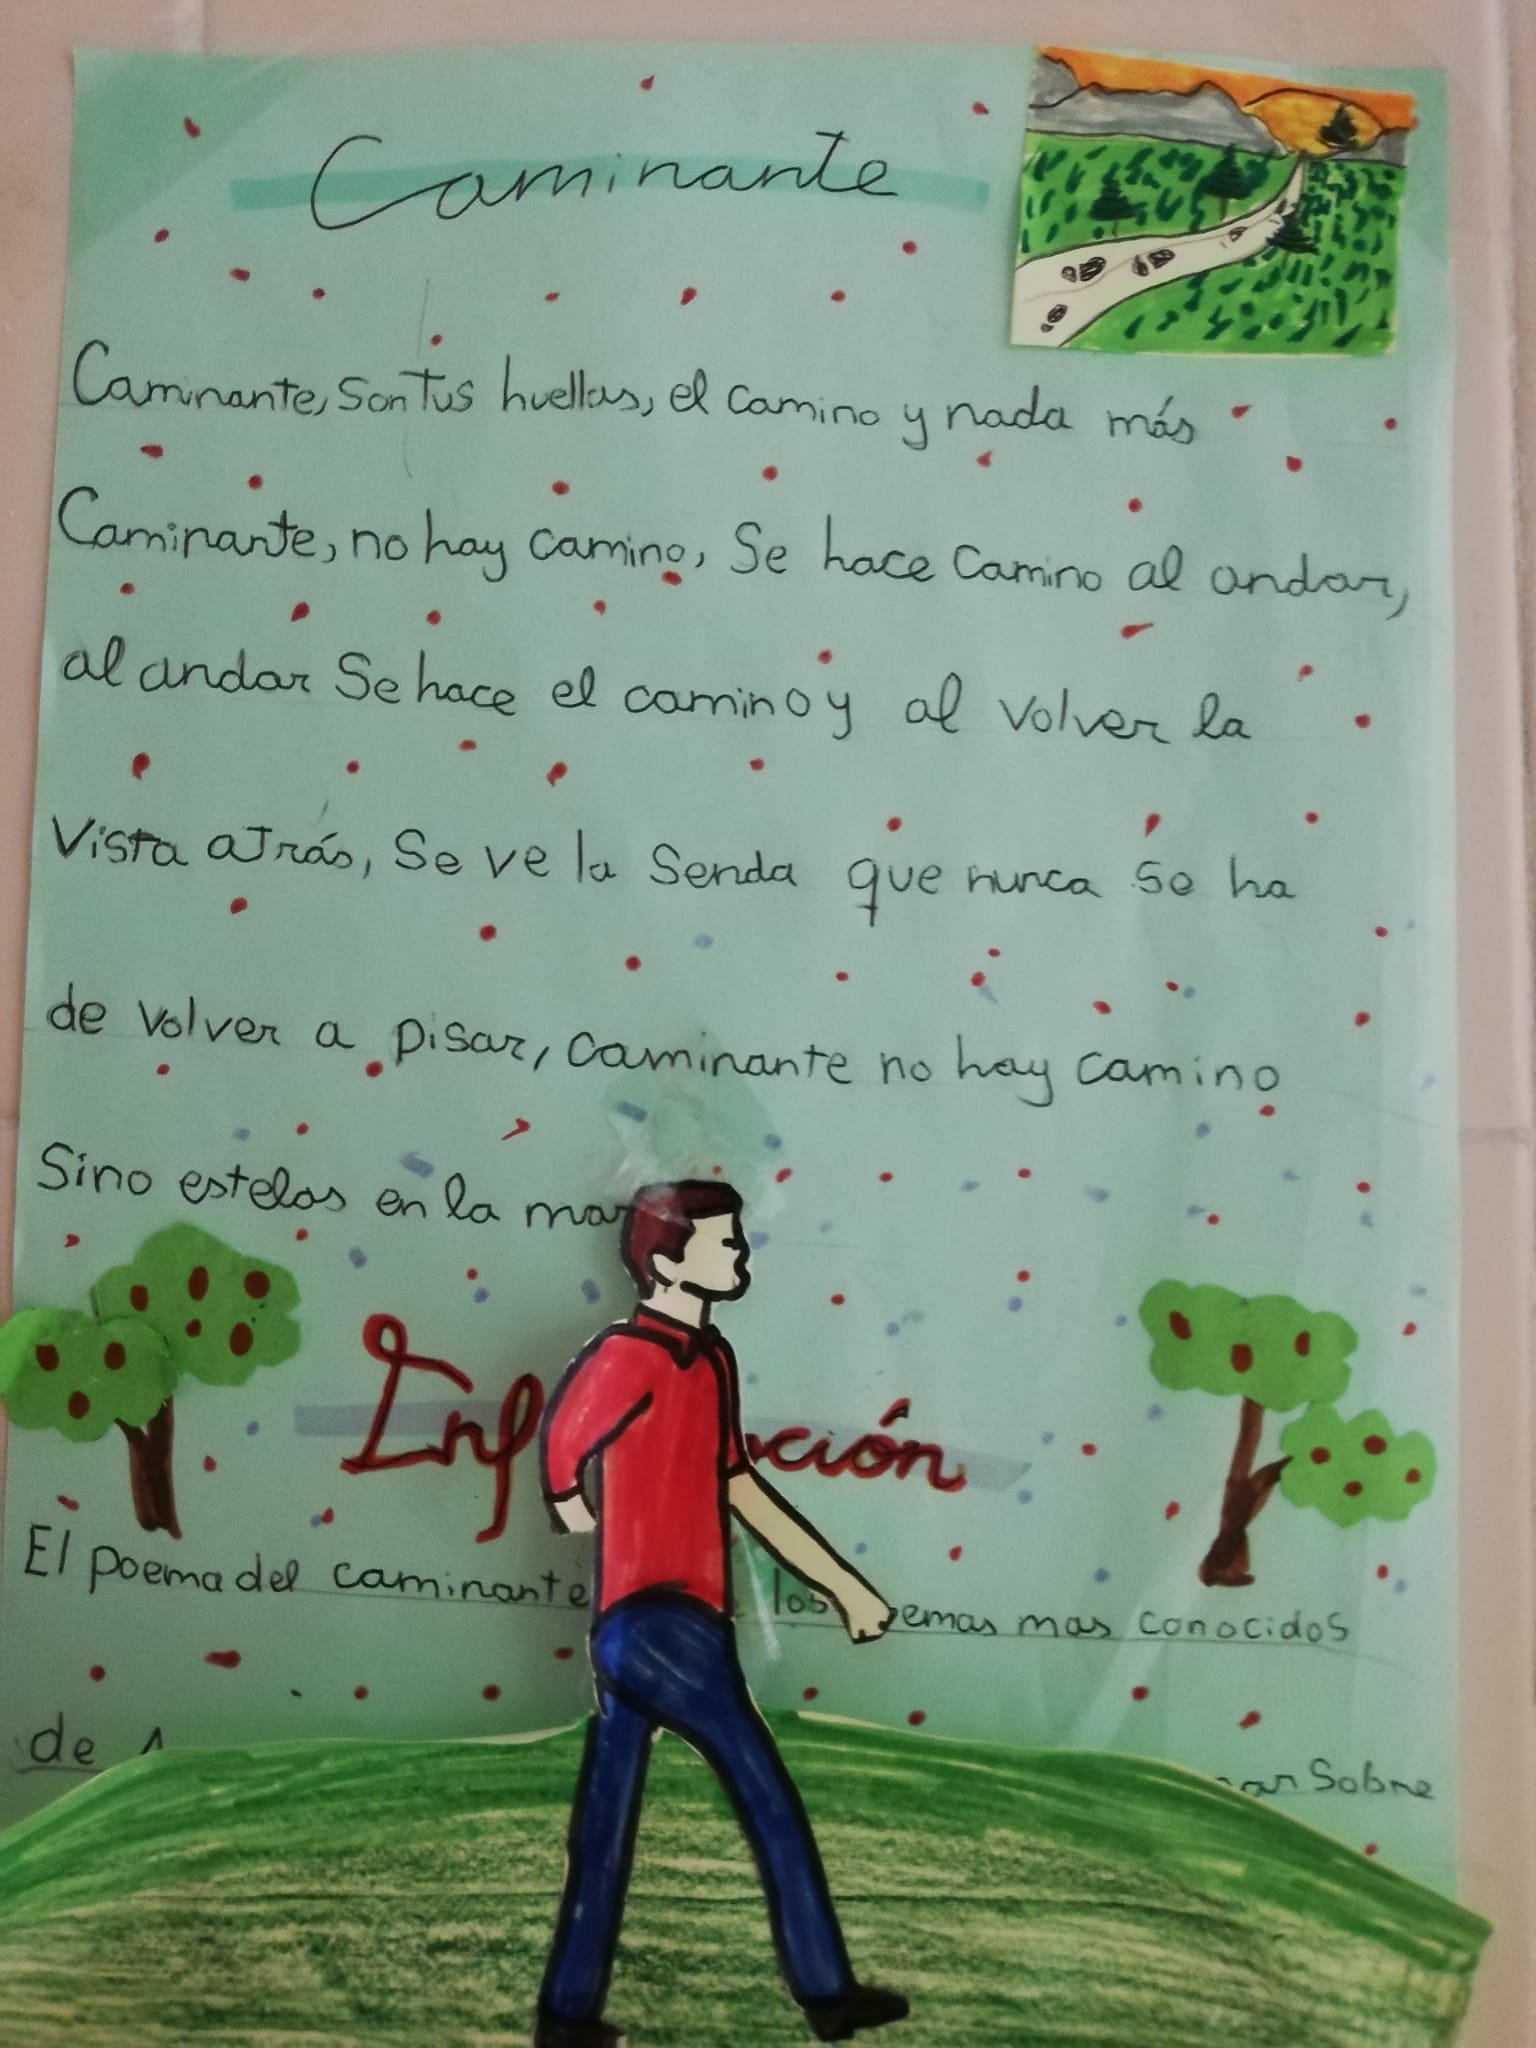 Caminante
Caminante, son tus huellas, el camino y nada más
Caminante, no hay camino, Se hace Camino al andar,
al andar Se hace el camino y al volver la
Vista atrás, Se ve la Senda que nunca se ha
de volver a pisar, caminante no hay camino
Sino estelas en la mar
El poema del caminante los mas conocidos
de Sobre